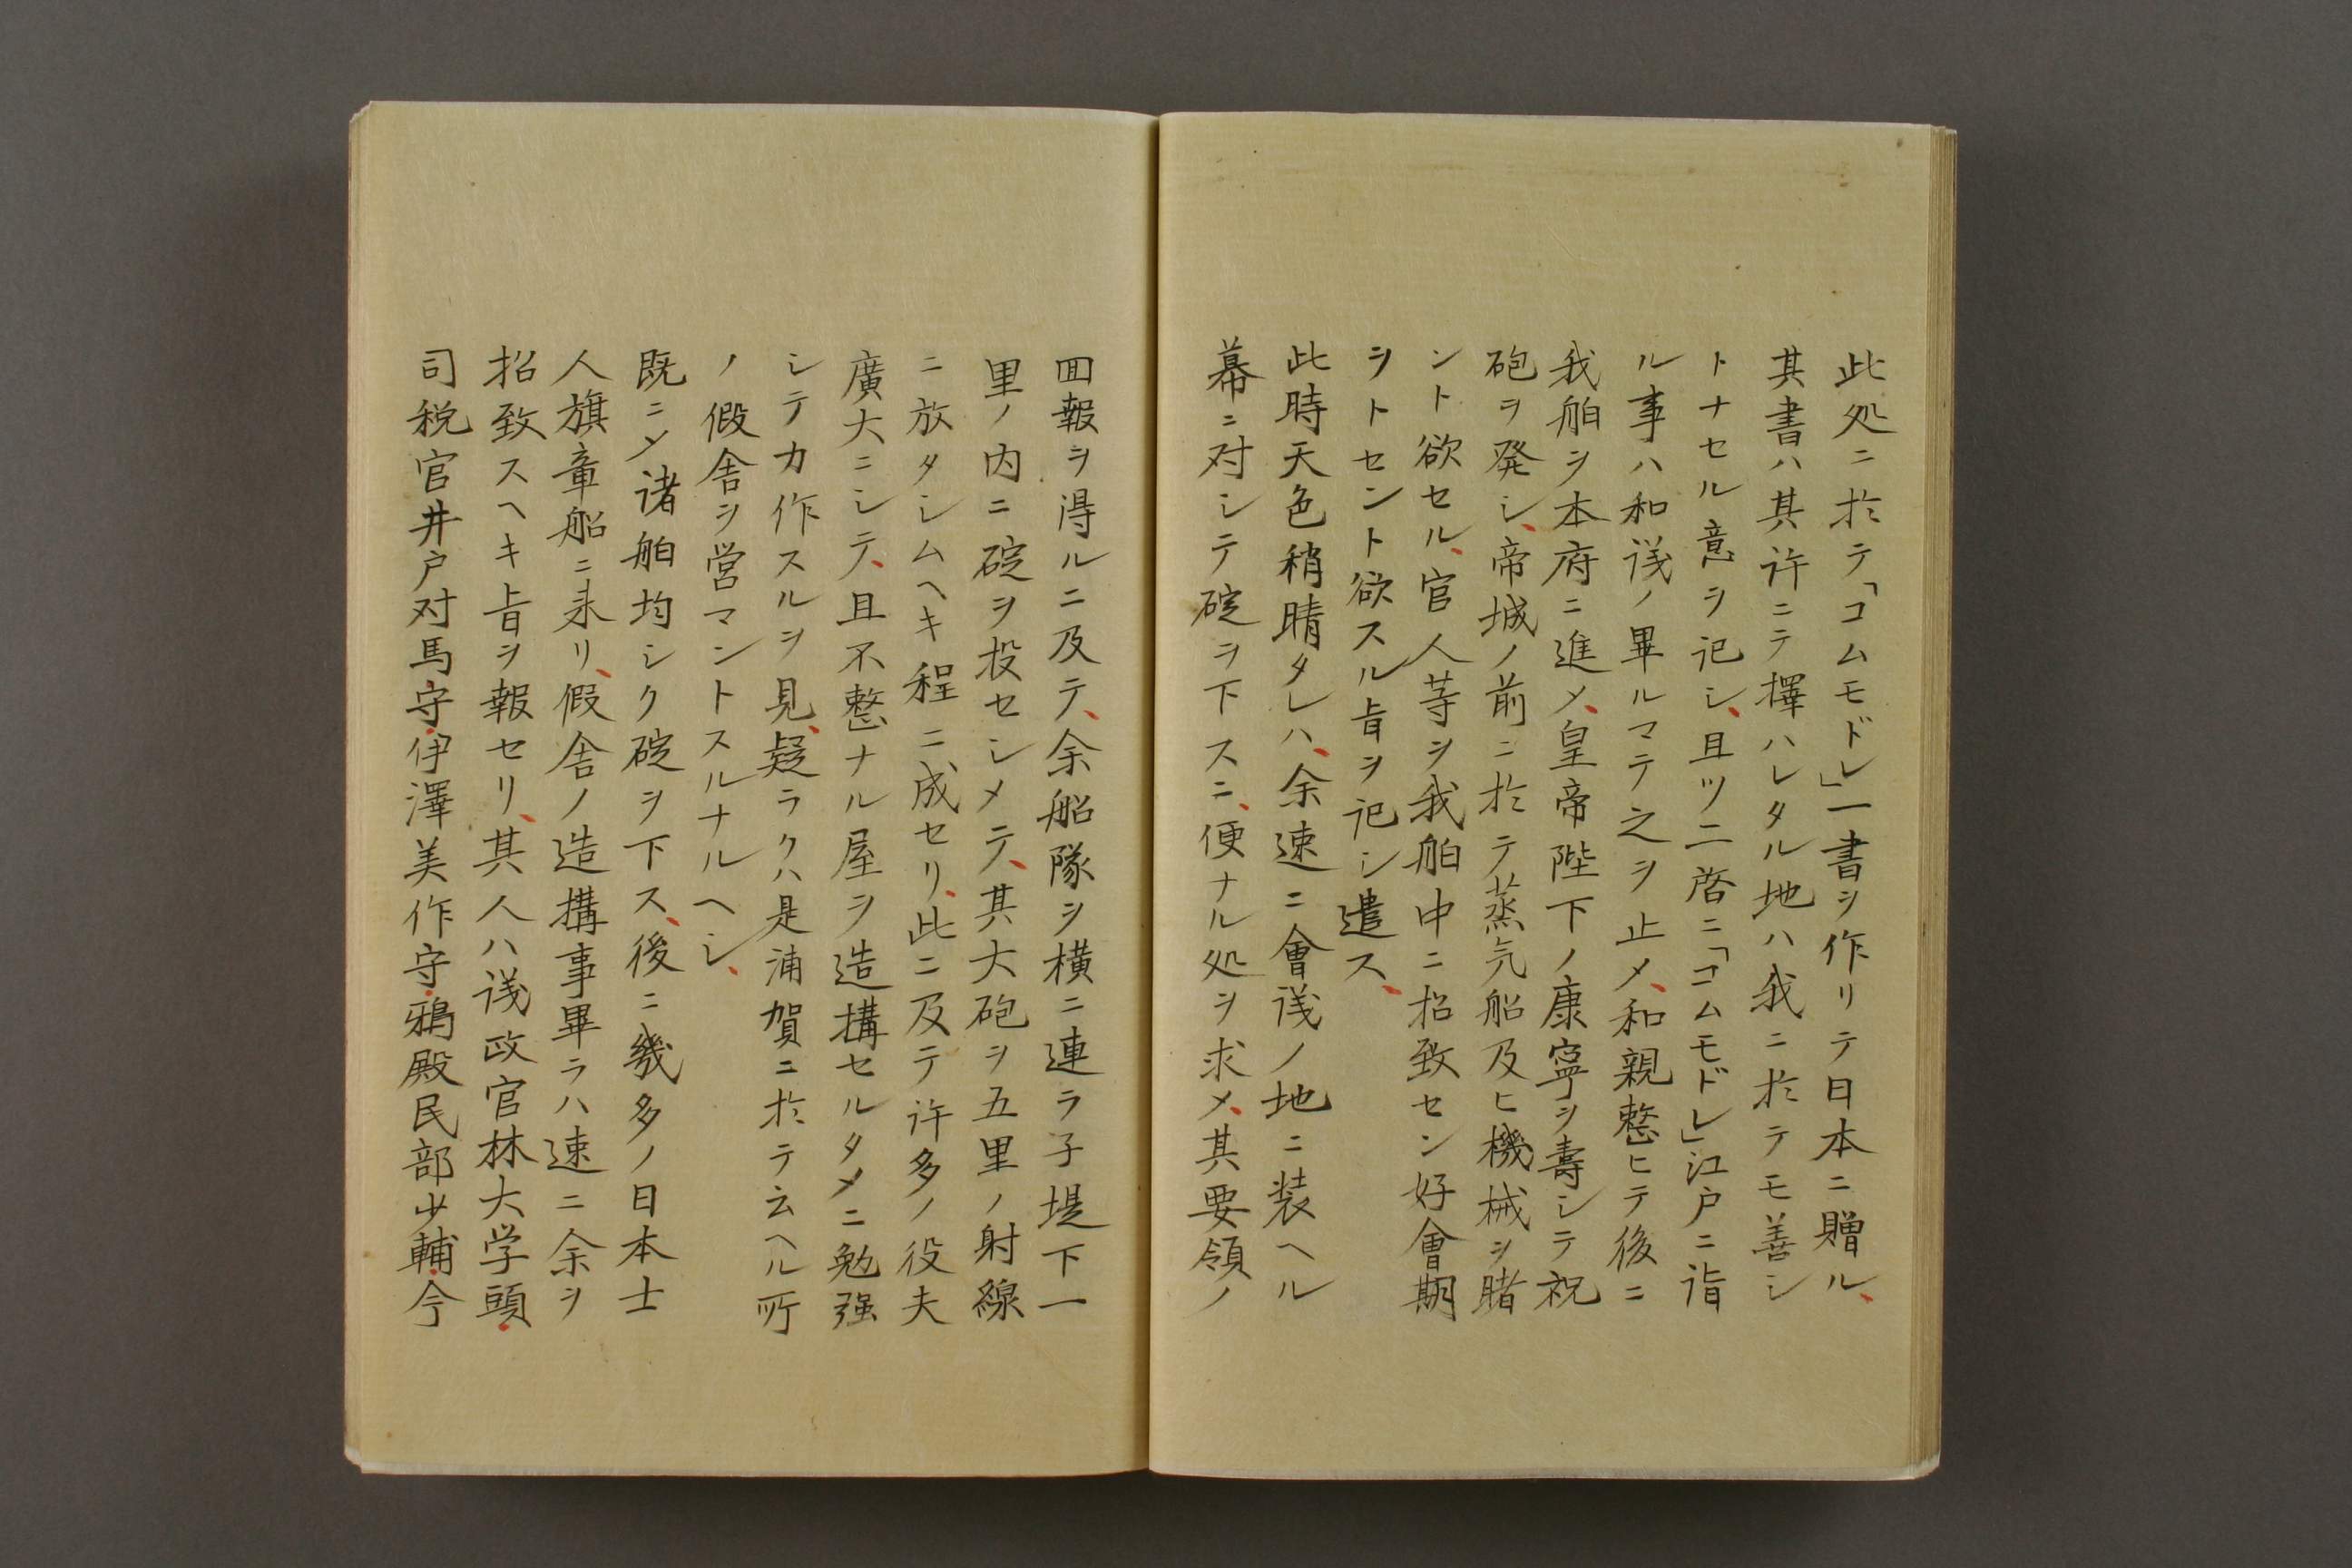 此処ニ於テ「コムモドレ」一書ヲ作リテ日本ニ贈ル、
其書ハ其許ニテ擇ハレタル地ハ我ニ於テモ善シ
トナセル意ヲ記シ、且ツ二啓ニ「コムモドレ」江戸ニ詣
ル事ハ和議ノ畢ルマテ之ヲ止メ、和親整ヒテ後ニ
我舶ヲ本府ニ進メ、皇帝陛下ノ康寧ヲ壽シテ祝
砲ヲ発シ、帝城ノ前ニ於テ蒸気船及ヒ機械ヲ睹
ント欲セル、官人等ヲ我舶中ニ招致セン好會期
ヲトセント欲スル旨ヲ記シ遣ス、
此時天色稍晴タレハ、余速ニ會議ノ地ニ装ヘル
幕ニ対シテ碇ヲ下スニ、便ナル処ヲ求メ、其要領ノ
回報ヲ得ルニ及テ、余船隊ヲ横ニ連ラ子堤下一
里ノ内ニ碇ヲ投セシメテ、其大砲ヲ五里ノ射線
ニ放タシムヘキ程ニ成セリ、此ニ及テ許多ノ役夫
廣大ニシテ、且不整ナル屋ヲ造搆セルタメニ勉强
シテカ作スルヲ見、疑ラクハ是浦賀ニ於テ云ヘル所
ノ假舎ヲ営マントスルナルヘシ、
既ニメ諸舶均シク碇ヲ下ス、後ニ幾多ノ日本士
人旗章船ニ来リ、假舎ノ造搆事畢ラハ速ニ余ヲ
招致スヘキ旨ヲ報セリ、其人ハ議政官林大学頭、
司税官井戸対馬守、伊澤美作守、鵜殿民部少輔、今